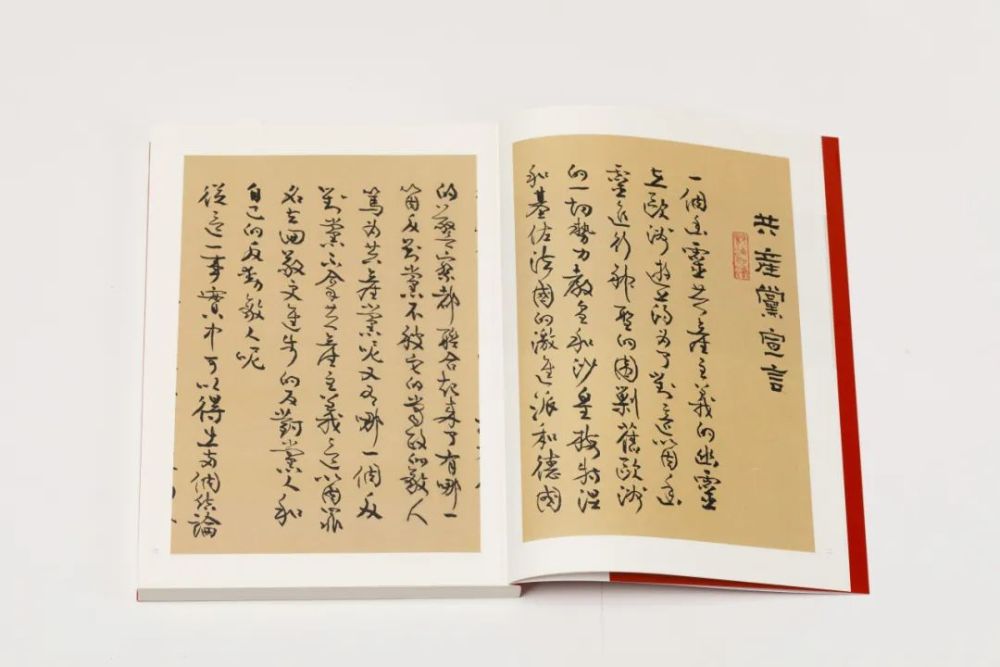 共產黨宣言
一個幽靈共產主義的幽靈
在歐洲遊蕩為了對這個幽
靈進行神聖的圍剿舊歐洲
的一切勢力教皇和沙皇梅特涅
和基佐法國的激進派和德國
的警察都聯合起來了有哪一
個反對黨不被它的當政的敵人
罵為共產黨呢又有哪一個反
對黨不拿共產主義這個罪
名去回敬更進步的反對黨人和
自己的反動敵人呢
從這一事實中可以得出兩個結論